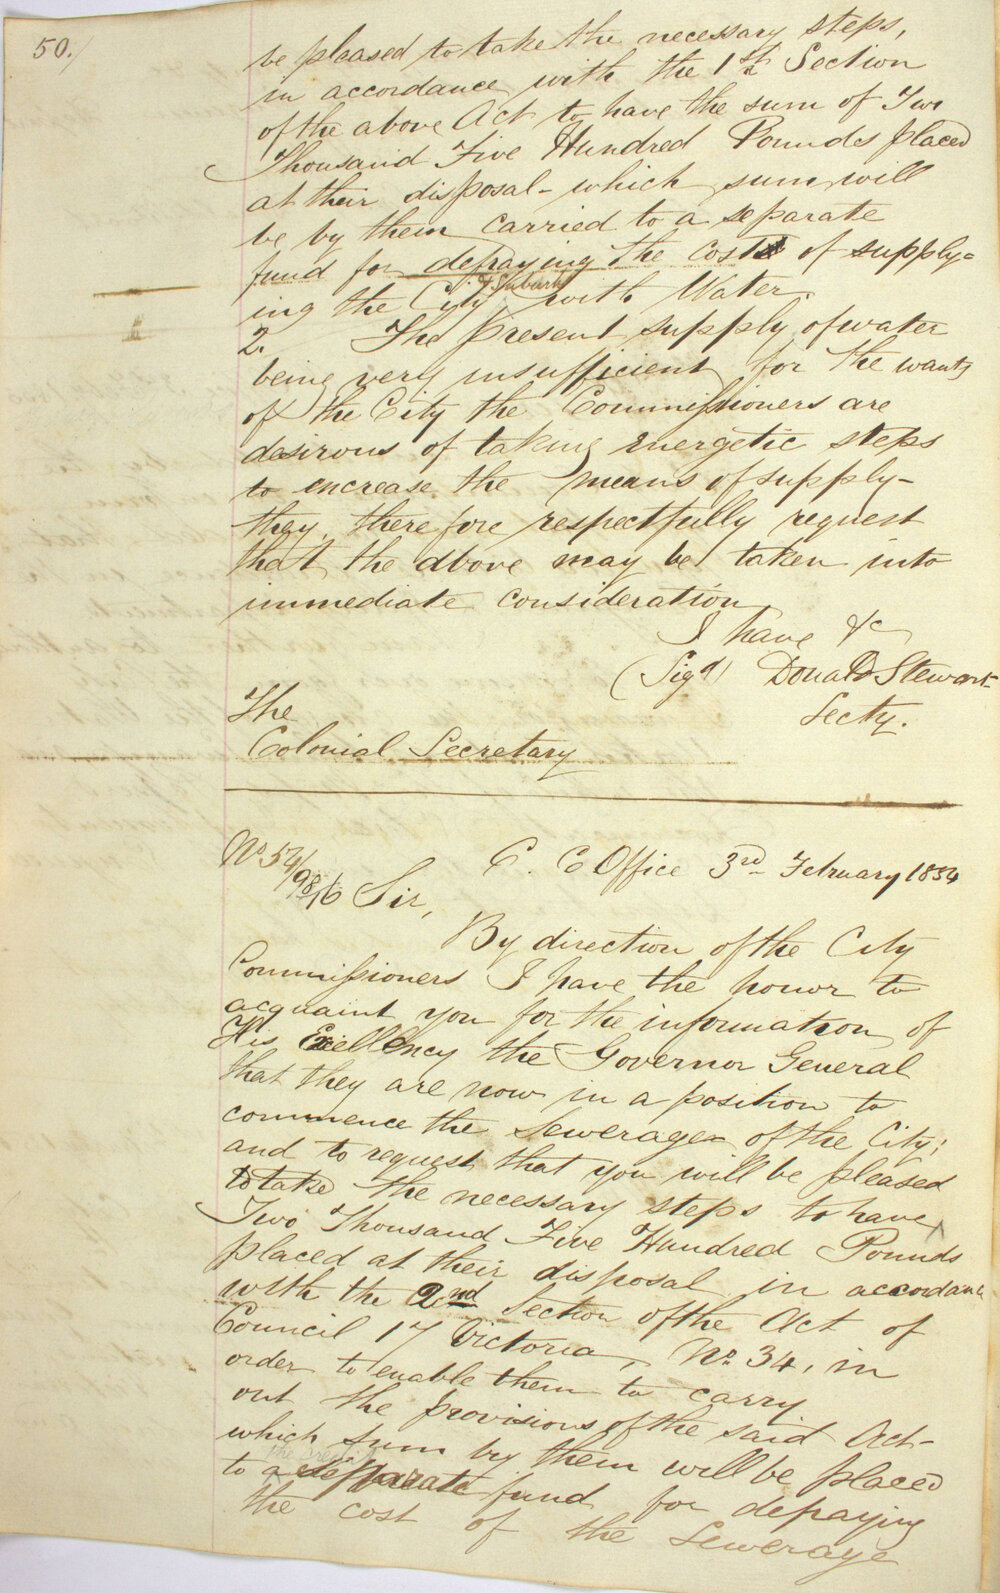 50./
be pleased to take the necessary steps,
in accordance with the 1st Section
of the above Act to have the sum of Two
Thousand Five Hundred Pounds placed
at their disposal - which sum will
be by them carried to a separate
fund for defraying the cost of supply=
& Suburbs
ing the City with Water.
2. The present supply of water
being very insufficient for the wants
of the City the Commissioners are
desirous of taking energetic steps
to encrease the means of supply -
they therefore respectfully request
that the above may be taken into
immediate consideration
I have &c
(Sigd) Donald Stewart
Secty.
The
Colonial Secretary
No. 54/
98/6
C. C Office 3rd February 1854
Sir,
By direction of the City
Commissioners I have the honor to
acquaint you for the information of
His Excellency the Governor General
that they are now in a position to
commence the Sewerage of the City;
and to request that you will be pleased
to take the necessary steps to have
Two Thousand Five Hundred Pounds
placed at their disposal in accordance
with the 2nd Section of the Act of
Council 17 Victoria, No. 34, in
order to enable them to carry
out the provisions of the said Act -
which sum by them will be placed
to a separate fund for defraying
the cost of the Sewerage